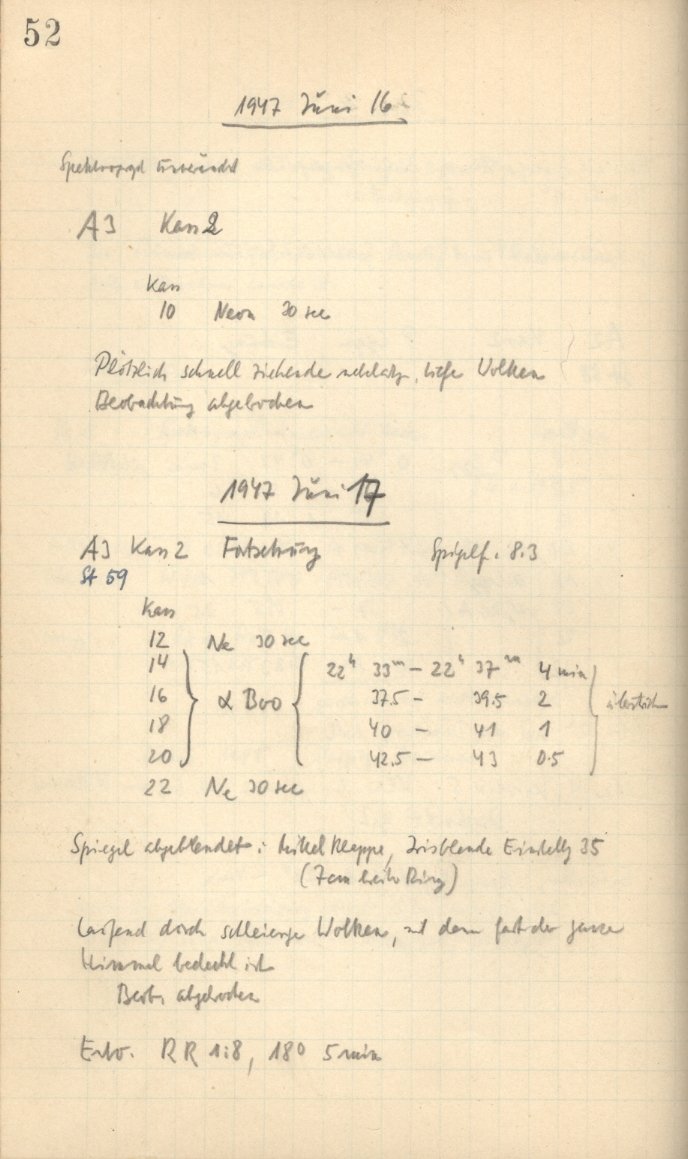 52
1947 Juni 16
Spektrograph unverändert
A3 Kass 2
Kass
10 Neon 30 sec
Plötzlich schnell ziehende tiefe Wolken
Beobachtung abgebrochen
1947 Juni 17
A3 Kass 2 Fortsetzung Spiegelf. 8.3
St 59
Kass
12 Ne 30 sec
14 22h 33m – 22h 37m 4 min
16 α Boo 37.5 – 39.5 2
18 40 – 41 1
20 42.5 – 43 0.5
22 Ne 30 sec
Spiegel abgeblendet: Mittel Klappe, Irisblende Einstellg 35
(7cm breiter Ring)
Laufend durch schleierige Wolken, mit denen fast der ganze
Himmel bedeckt ist
Beob. abgebrochen
Entw. RR 1:8, 18° 5 min